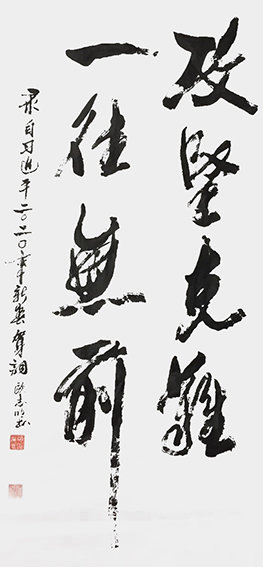 攻堅克難
一往無前
录自习近平二〇二〇年新春贺词